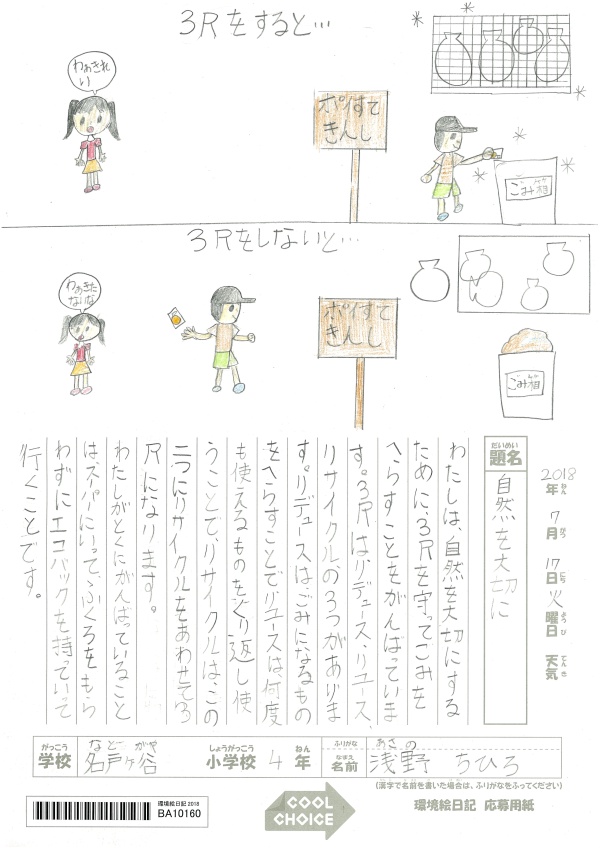 3Rをすると…
わあきれ
い
ポイすて
きんし
ごみ相
3Rをしないと…
わあきた
ないな
ポイすて
きんし
ごみ相
2018年 7月 17日 火曜日 天気
ねん がつ にち ようび てんき
だいめい
題名
自然を大切に
わたしは、自然を大切にする
ために、3Rを守ってごみを
へらすことをがんばっていま
す。3Rは、リデュース、リユース、
リサイクルの3つがありま
す。リデュースはごみになるもの
をへらすことでリユースは、何度
も使えるものをくり返し使
うことで、リサイクルは、この
二つにリサイクルをあわせて3
Rになります。
わたしがとくにがんばっていること
は、スーパーにいって、ふくろをもら
わずにエコバックを持っていって
行くことです。
がっこう などがや しょうがっこう ねん ふりがな あさの
学校 名戸ヶ谷 小学校 4年 なまえ 名前 浅野 ちひろ
(漢字で名前を書いた場合は、ふりがなをふってください)
環境絵日記2018
BA10160
COOL
CHOICE
環境絵日記 応募用紙